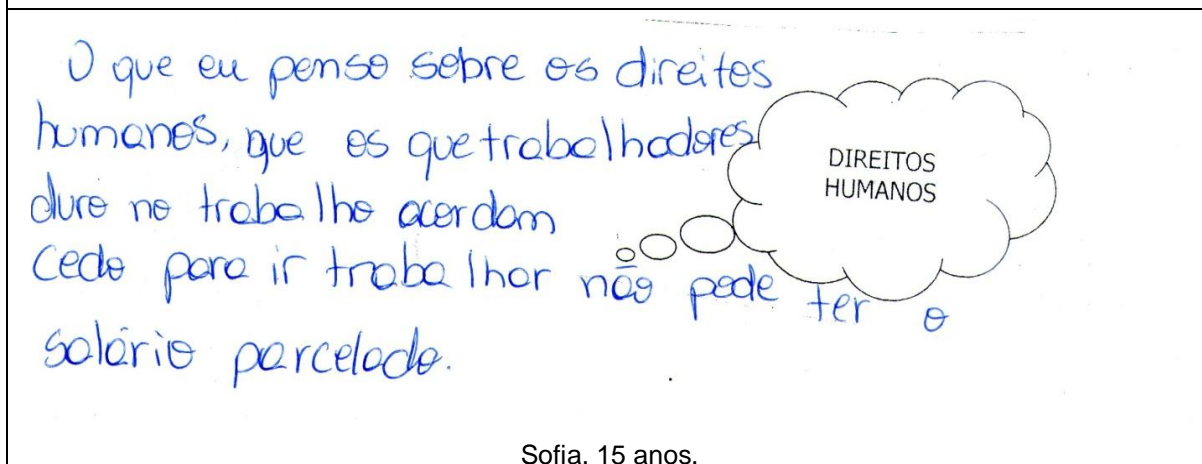 O que eu penso sobre os direitos
humanos, que os que trabalhadores
duro no trabalho acordam
cedo para ir trabalhar não pode ter o
salário parcelado.
DIREITOS
HUMANOS
Sofia, 15 anos.